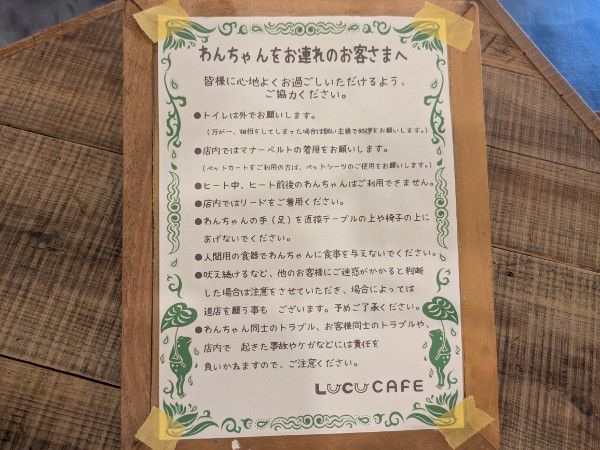 わんちゃんをお連れのお客さまへ
皆様に心地よくお過ごしいただけるよう、
ご協力ください。
●トイレは外でお願いします。
(万が一、粗相をしてしまった場合は飼い主様で処理をお願いします。)
●店内ではマナーベルトの着用をお願いします。
(ペットカートをご利用の方は、ペットシーツのご使用をお願いします。)
●ヒート中、ヒート前後のわんちゃんはご利用できません。
●店内ではリードをご着用ください。
●わんちゃんの手(足)を直接テーブルの上や椅子の上に
あげないでください。
●人間用の食器でわんちゃんに食事を与えないでください。
●吠え続けるなど、他のお客様にご迷惑がかかると判断
した場合は注意をさせていただき、場合によっては
退店を願う事も ございます。予めご了承ください。
●わんちゃん同士のトラブル、お客様同士のトラブルや、
店内で 起きた事故やケガなどには責任を
負いかねますので、ご注意ください。
LUCU CAFE